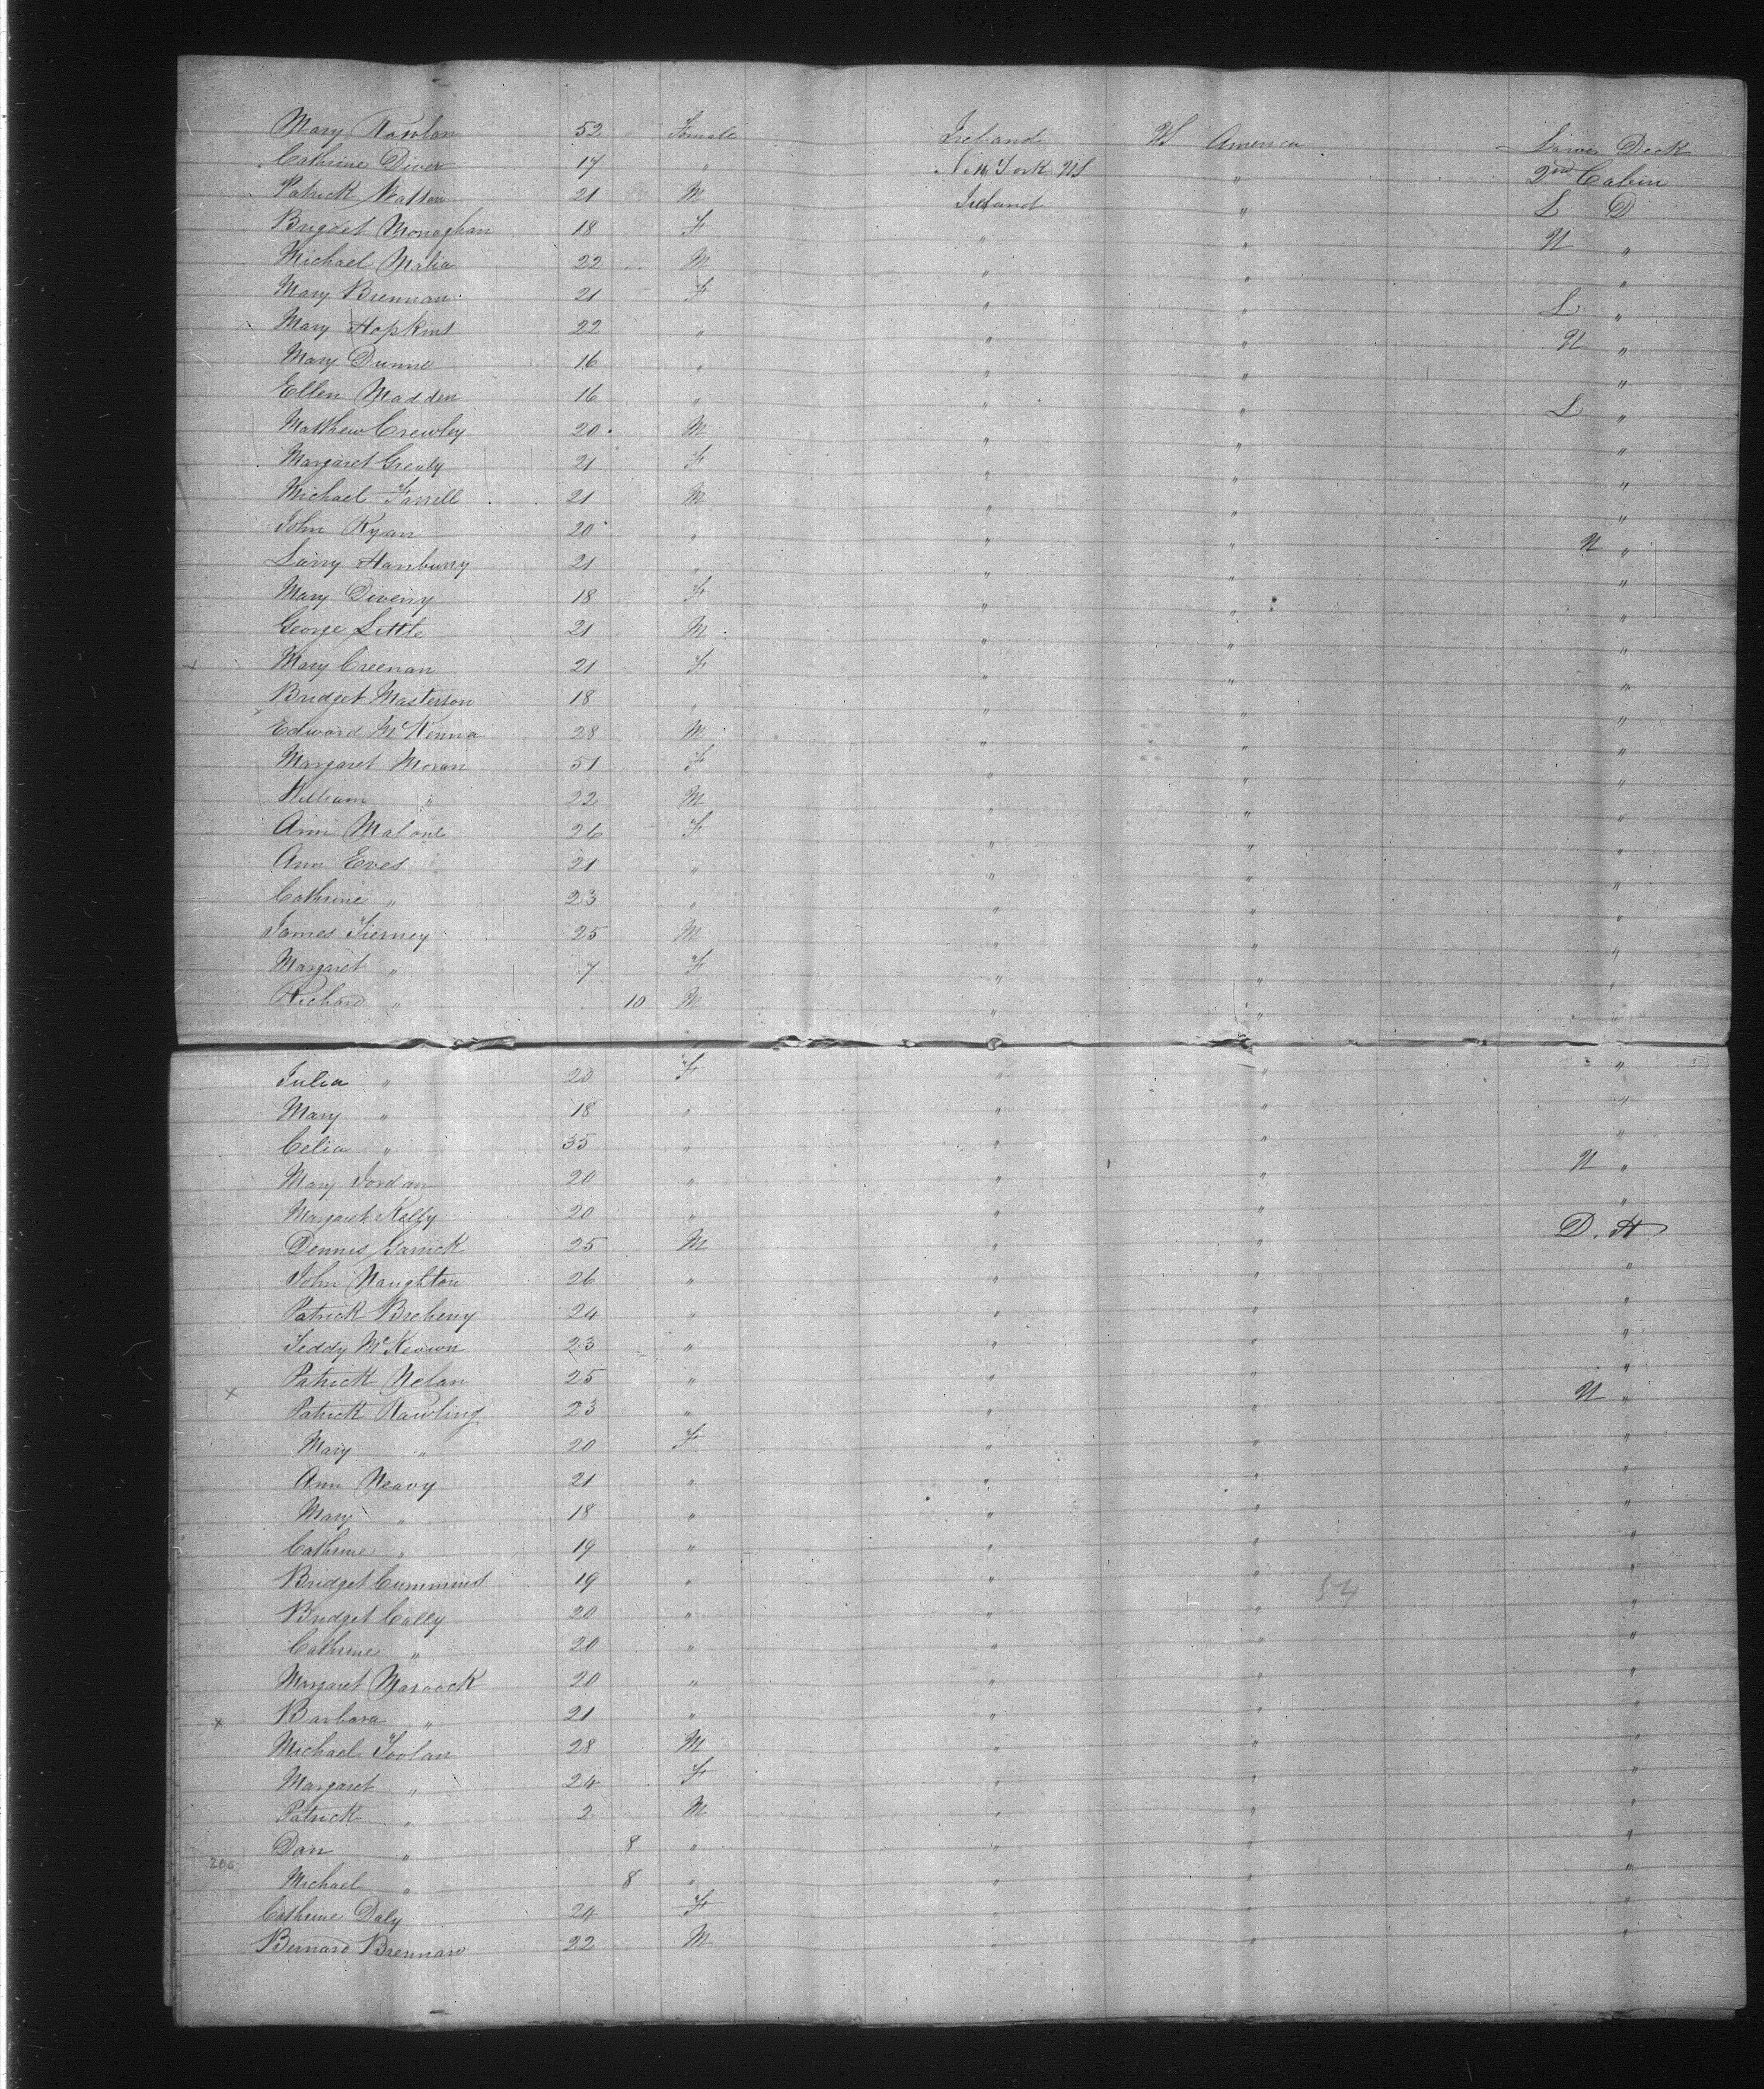 Mary Rowlan 52 Female Ireland US America Lower Deck
Cathrine Diver 17 " New York US " 2nd Cabin
Patrick Watson 21 M Ireland " L D
Brigdet Monaghan 18 F " " U "
Michael Malia 22 M " " "
Mary Brennan 21 F " " L "
Mary Hopkins 22 " " " U "
Mary Dunne 16 " " " "
Ellen Madden 16 " " " L "
Matthew Crewley 20 M " " "
Margaret Grealy 21 F " " "
Michael Farrell 21 M " " "
John Ryan 20 " " " U "
Larry Hanburry 21 " " " "
Mary Diveny 18 F " " "
George Little 21 M " " "
Mary Creenan 21 F " " "
Bridget Masterson 18 " " " "
Edward McKenna 28 M " " "
Margaret Moran 51 F " " "
William " 22 M " " "
Ann Malone 26 F " " "
Ann Eves 21 " " " "
Cathrine " 23 " " " "
James Tierney 25 M " " "
Margaret " 7 F " " "
Richard " 10 M " " "
Julia " 20 F " " "
Mary " 18 " " " "
Celia " 35 " " " "
Mary Jordan 20 " " " U "
Margaret Kelly 20 " " " "
Dennis Garrick 25 M " " D. H
John Naughton 26 " " " "
Patrick Breheny 24 " " " "
Teddy McKeown 23 " " " "
Patrick Nelan 25 " " " "
x Patrick Rawling 23 " " " U "
Mary " 20 F " " "
Ann Neavy 21 " " " "
Mary " 18 " " " "
Cathrine " 19 " " " "
Bridget Cummins 19 " " " 54 "
Bridget Cally 20 " " " "
Cathrine " 20 " " " "
Margaret 20 " " " "
x Barbara " 21 " " " "
Michael Toolan 28 M " " "
Margaret " 24 F " " "
Patrick " 2 M " " "
Dan " 8 " " " "
200 Michael " 8 " " " "
Cathrine Daly 24 F " " "
Bernard Brennan 22 M " " "